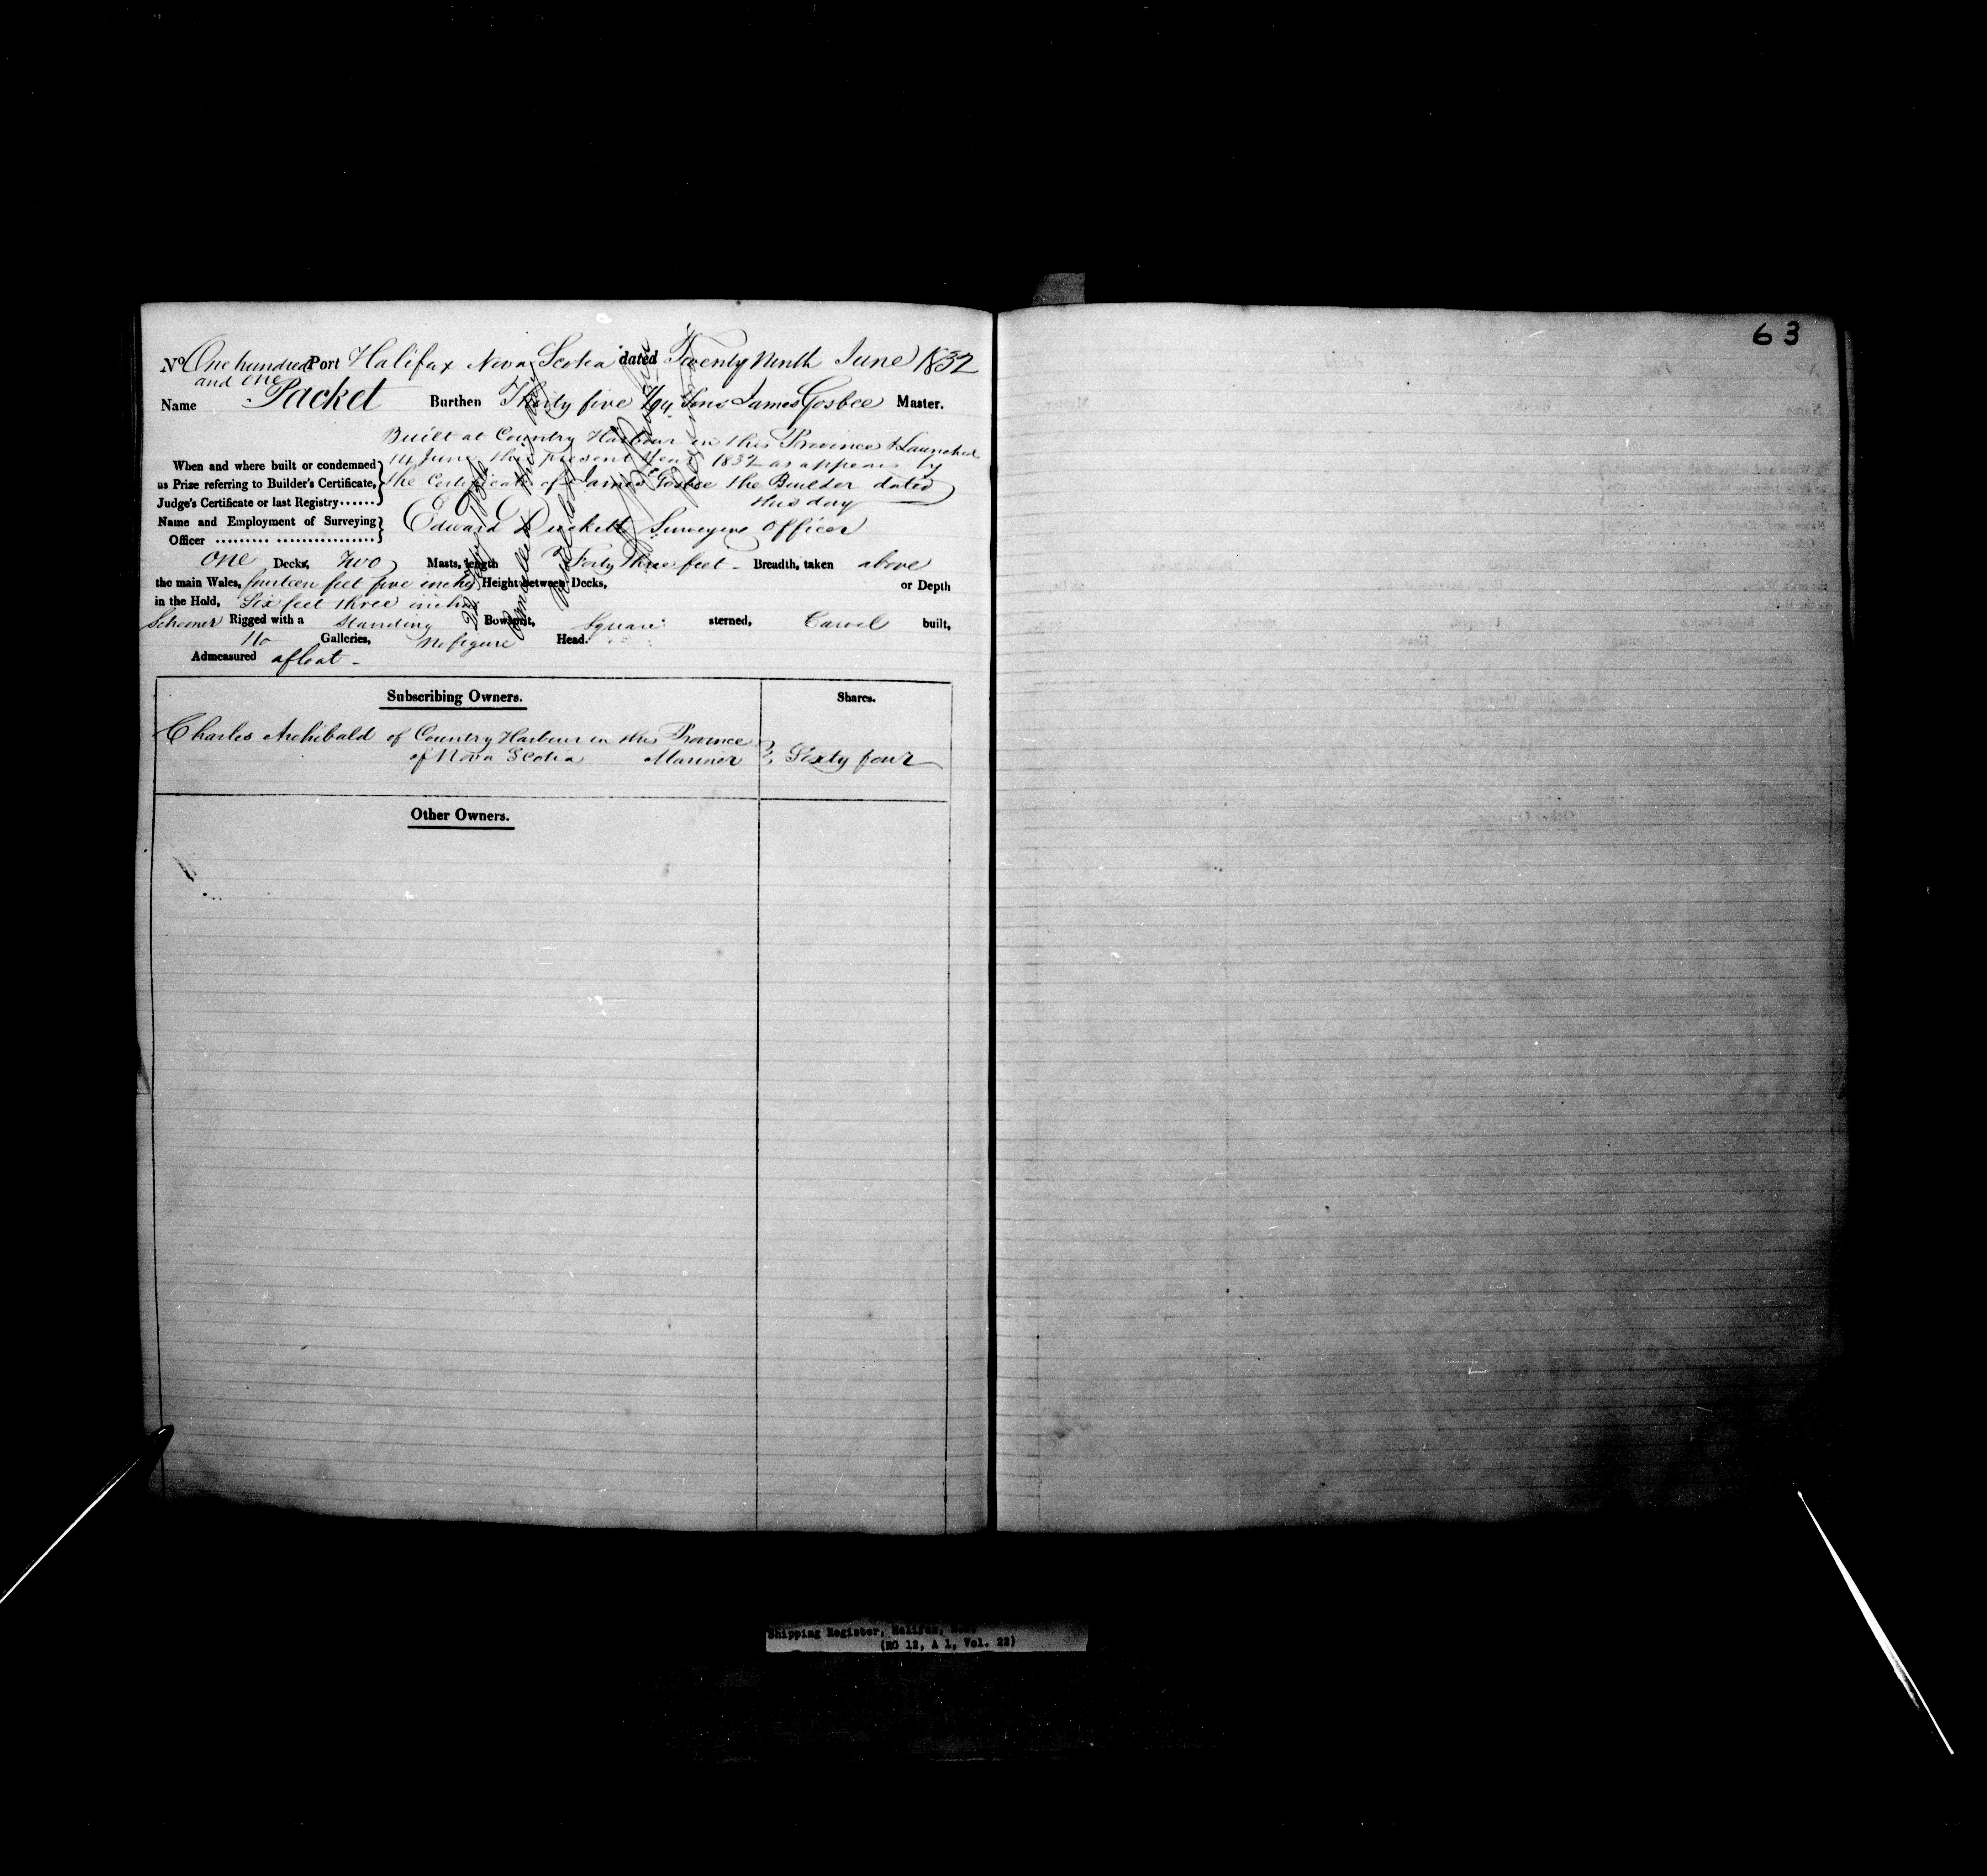 63
No One hundred and one Port Halifax Nova Scotia dated Twenty Ninth June 1832
Name Packet Burthen Thirty five Tons James Gosbee Master.
Built at Country Harbour in this Province & Launched
When and where built or condemned 14 June this present Year 1832 as appears by
as Prize referring to Builder's Certificate, the Certificate of James Gosbee the Builder dated
Judge's Certificate or last Registry...... this day
Name and Employment of Surveying Edward Duckett Surveying Officer
Officer ......... ................
One Decks, Two Masts, length Forty three feet - Breadth, taken above
the main Wales, fourteen feet five inches Height between Decks, or Depth
in the Hold, Six feet three inches
Schooner Rigged with a Standing Bowsprit, Square sterned, Carvel built,
No Galleries, No figure Head.
Admeasured afloat -
Subscribing Owners. Shares.
Charles Archibald of Country Harbour in this Province
of Nova Scotia Mariner Sixty four
Other Owners.
Cancelled this
Shipping Register, Halifax, N.S.
(RG 12, A 1, Vol. 22)